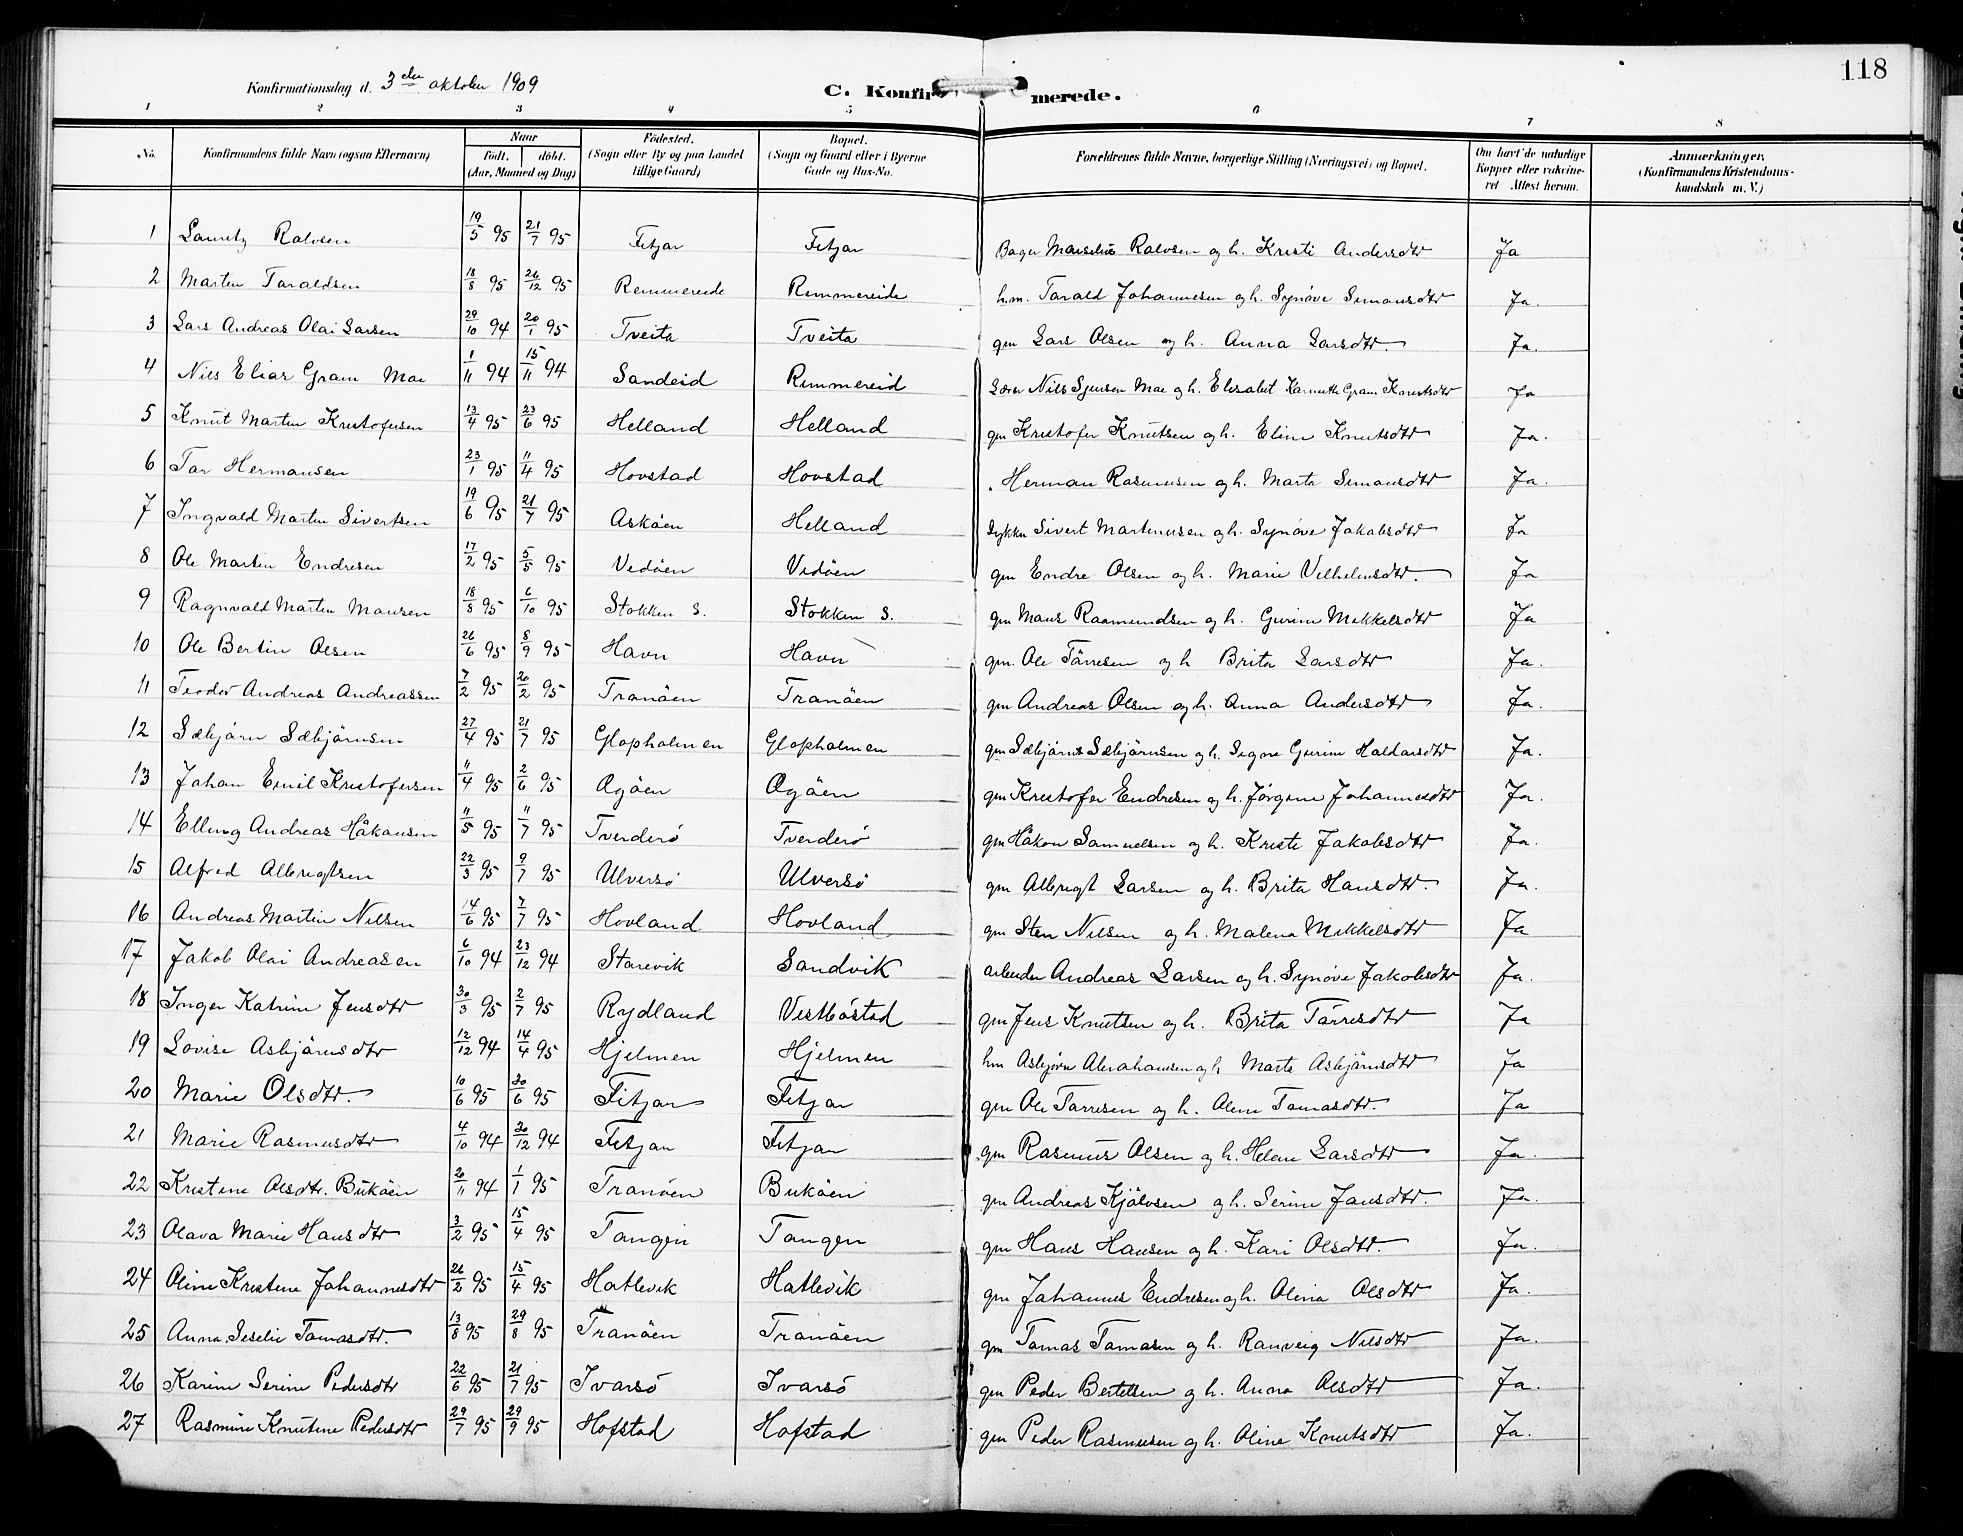 118
Konfirmationsdag d. 3den oktober 1909
C. Konfir merede.
1 2 3 4 5 6 7 8
No. Konfirmandens fulde Navn (ogsaa Efternavn) Naar født. døbt. (Aar, Maaned og Dag) Fødested. (Sogn eller By og paa Landet tillige Gaard) Bopæl. (Sogn og Gaard eller i Byerne Gade og Hus-No. Forældrenes fulde Navne, borgerlige Stilling (Næringsvei) og Bopæl. Om havt de naturlige Kopper eller vakcineret. Attest herom. Anmærkninger. (Konfirmandens Kristendomskundskab m. V.)
1 Lauritz Ralvsen 19/5 95 21/7 95 Fitjar Fitjar Bager Marselius Ralvsen og h. Kristi Andersdtr Ja
2 Martin Taraldsen 18/8 95 26/12 95 Remmereide Remmereide h.m. Tarald Johannesen og h. Synøve Simonsdtr Ja.
3 Lars Andreas Olai Larsen 29/10 94 20/1 95 Tveita Tveita gm Lars Olsen og h. Anna Larsdtr. Ja.
4 Nils Elias Gram Moe 1/11 94 15/11 94 Sandeid Remmereid Lærer Nils Moe og h. Elisabet Gram Knutsdtr Ja
5 Knut Martin Kristofersen 13/4 95 23/6 95 Helland Helland gm Kristofer Knutsen og h. Elin Knutsdtr Ja.
6 Tor Hermansen 23/1 95 11/4 95 Hovstad Hovstad . Herman Rasmusen og h. Marta Simonsdtr Ja.
7 Ingvald Martin Sivertsen 19/6 95 21/7 95 Askøen Helland Sivert Martinusen og h. Synøve Jakobsdtr Ja
8 Ole Martin Endresen 17/2 95 5/5 95 Vedøen Vedøen gm Endre Olsen og h. Marie Velhelmsdtr. Ja
9 Ragnvald Martin Monsen 18/8 95 6/10 95 Stokken S. Stokken S. gm Mons Raamundsen og h. Gurine Mekkelsdtr Ja
10 Ole Bertin Olsen 26/6 95 8/9 95 Havn Havn gm. Ole Tørresen og h Brita Larsdtr Ja.
11 Teodor Andreas Andreassen 7/2 95 20/2 95 Tranøen Tranøen gm Andreas Olsen og h. Anna Andersdtr Ja.
12 Sæbjørn Sæbjørnsen 27/4 95 21/7 95 Glopholmen Glopholmen gm Sæbjørn Sæbjørnsen og h. Signe Gurine Haldorsdtr Ja.
13 Johan Emil Kristofersen 11/4 95 2/6 95 Agøen Agøen gm Kristofer Endresen og h. Jørgine Johannesdtr Ja.
14 Elling Andreas Håkonsen 11/5 95 11/7 95 Tverderø Tverderø gm Håkon Samuelsen og h. Kristi Jakobsdtr Ja.
15 Alfred Albregtsen 22/3 95 9/7 95 Ulversø Ulversø gm Albregt Larsen og h. Brita Hansdtr. Ja.
16 Andreas Martin Nilsen 14/6 95 7/7 95 Hovland Hovland gm Sten Nilsen og h. Malena Mikkelsdtr Ja
17 Jakob Olai Andreasen 6/10 94 23/12 94 Starevik Sandvik arbeider Andreas Larsen og h. Synøve Jakobsdtr Ja.
18 Inger Katrine Jensdtr 30/3 95 2/7 95 Rydland Vestbøstad gm Jens Knutsen og h. Brita Tørresdtr Ja
19 Lovise Asbjørnsdtr 12/12 94 14/4 95 Hjelmen Hjelmen hm Asbjørn Abrahamsen og h Marta Asbjørnsdtr Ja
20 Marie Olsdtr. 10/6 95 30/6 95 Fitjar Fitjar gm Ole Tørresen og h. Oline Tomasdtr. Ja
21 Marie Rasmusdtr 4/10 94 30/12 94 Fitjar Fitjar gm Rasmus Olsen og h. Helene Larsdtr Ja.
22 Kristine Olsdtr. Bukøen 20/11 94 1/1 95 Tranøen Bukøen gm Andreas Kjølvsen og h. Serine Jansdtr. Ja.
23 Olava Marie Hansdtr 3/2 95 15/4 95 Tangen Tangen gm Hans Hansen og h. Kari Olsdtr. Ja.
24 Oline Kristine Johannesdtr 26/2 95 15/4 95 Hatlevik Hatlevik gm Johannes Endresen og h. Olina Olsdtr Ja.
25 Anna Seselie Tomasdtr. 13/8 95 29/8 95 Tranøen Tranøen gm Tomas Tomasen og h. Ranveig Nilsdtr Ja.
26 Karine Serine Pedersdtr 22/6 95 21/7 95 Ivarsø Ivarsø gm Peder Bertelsen og h. Anna Olsdtr Ja.
27 Rasmine Knutine Pedersdtr 29/7 95 29/9 95 Hofstad Hofstad gm Peder Rasmusen og h. Oline Knutsdtr Ja.